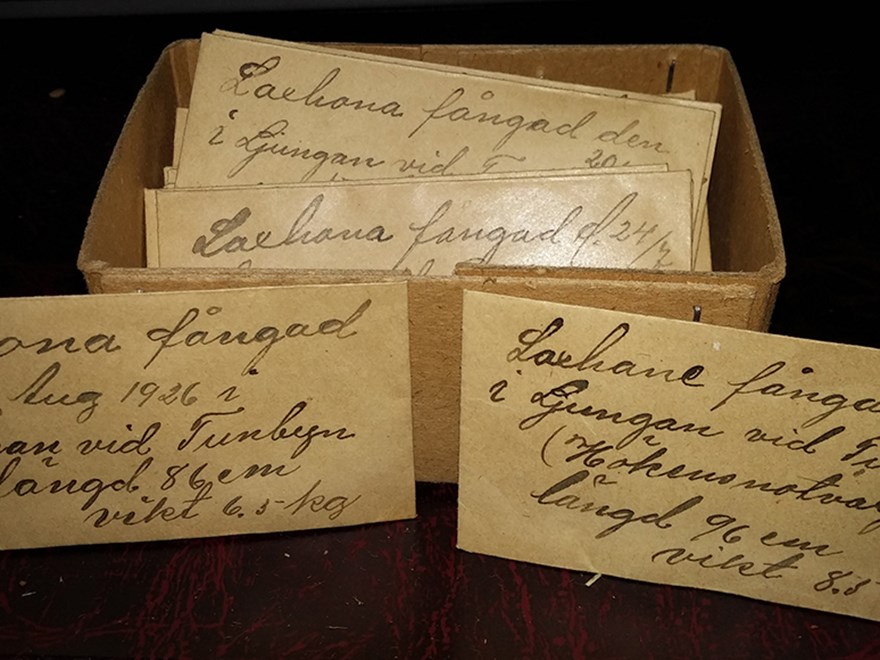 Laxhona fångad den
i Ljungan vid T 20
Laxhona fångad d. 24/7
ona fångad
Aug 1926 i
an vid Tunbyn
längd 86 cm
vikt 6.5 kg
Laxhane fånga
i Ljungan vid Tu
(Hökensnotva
längd 96 cm
vikt 8.5